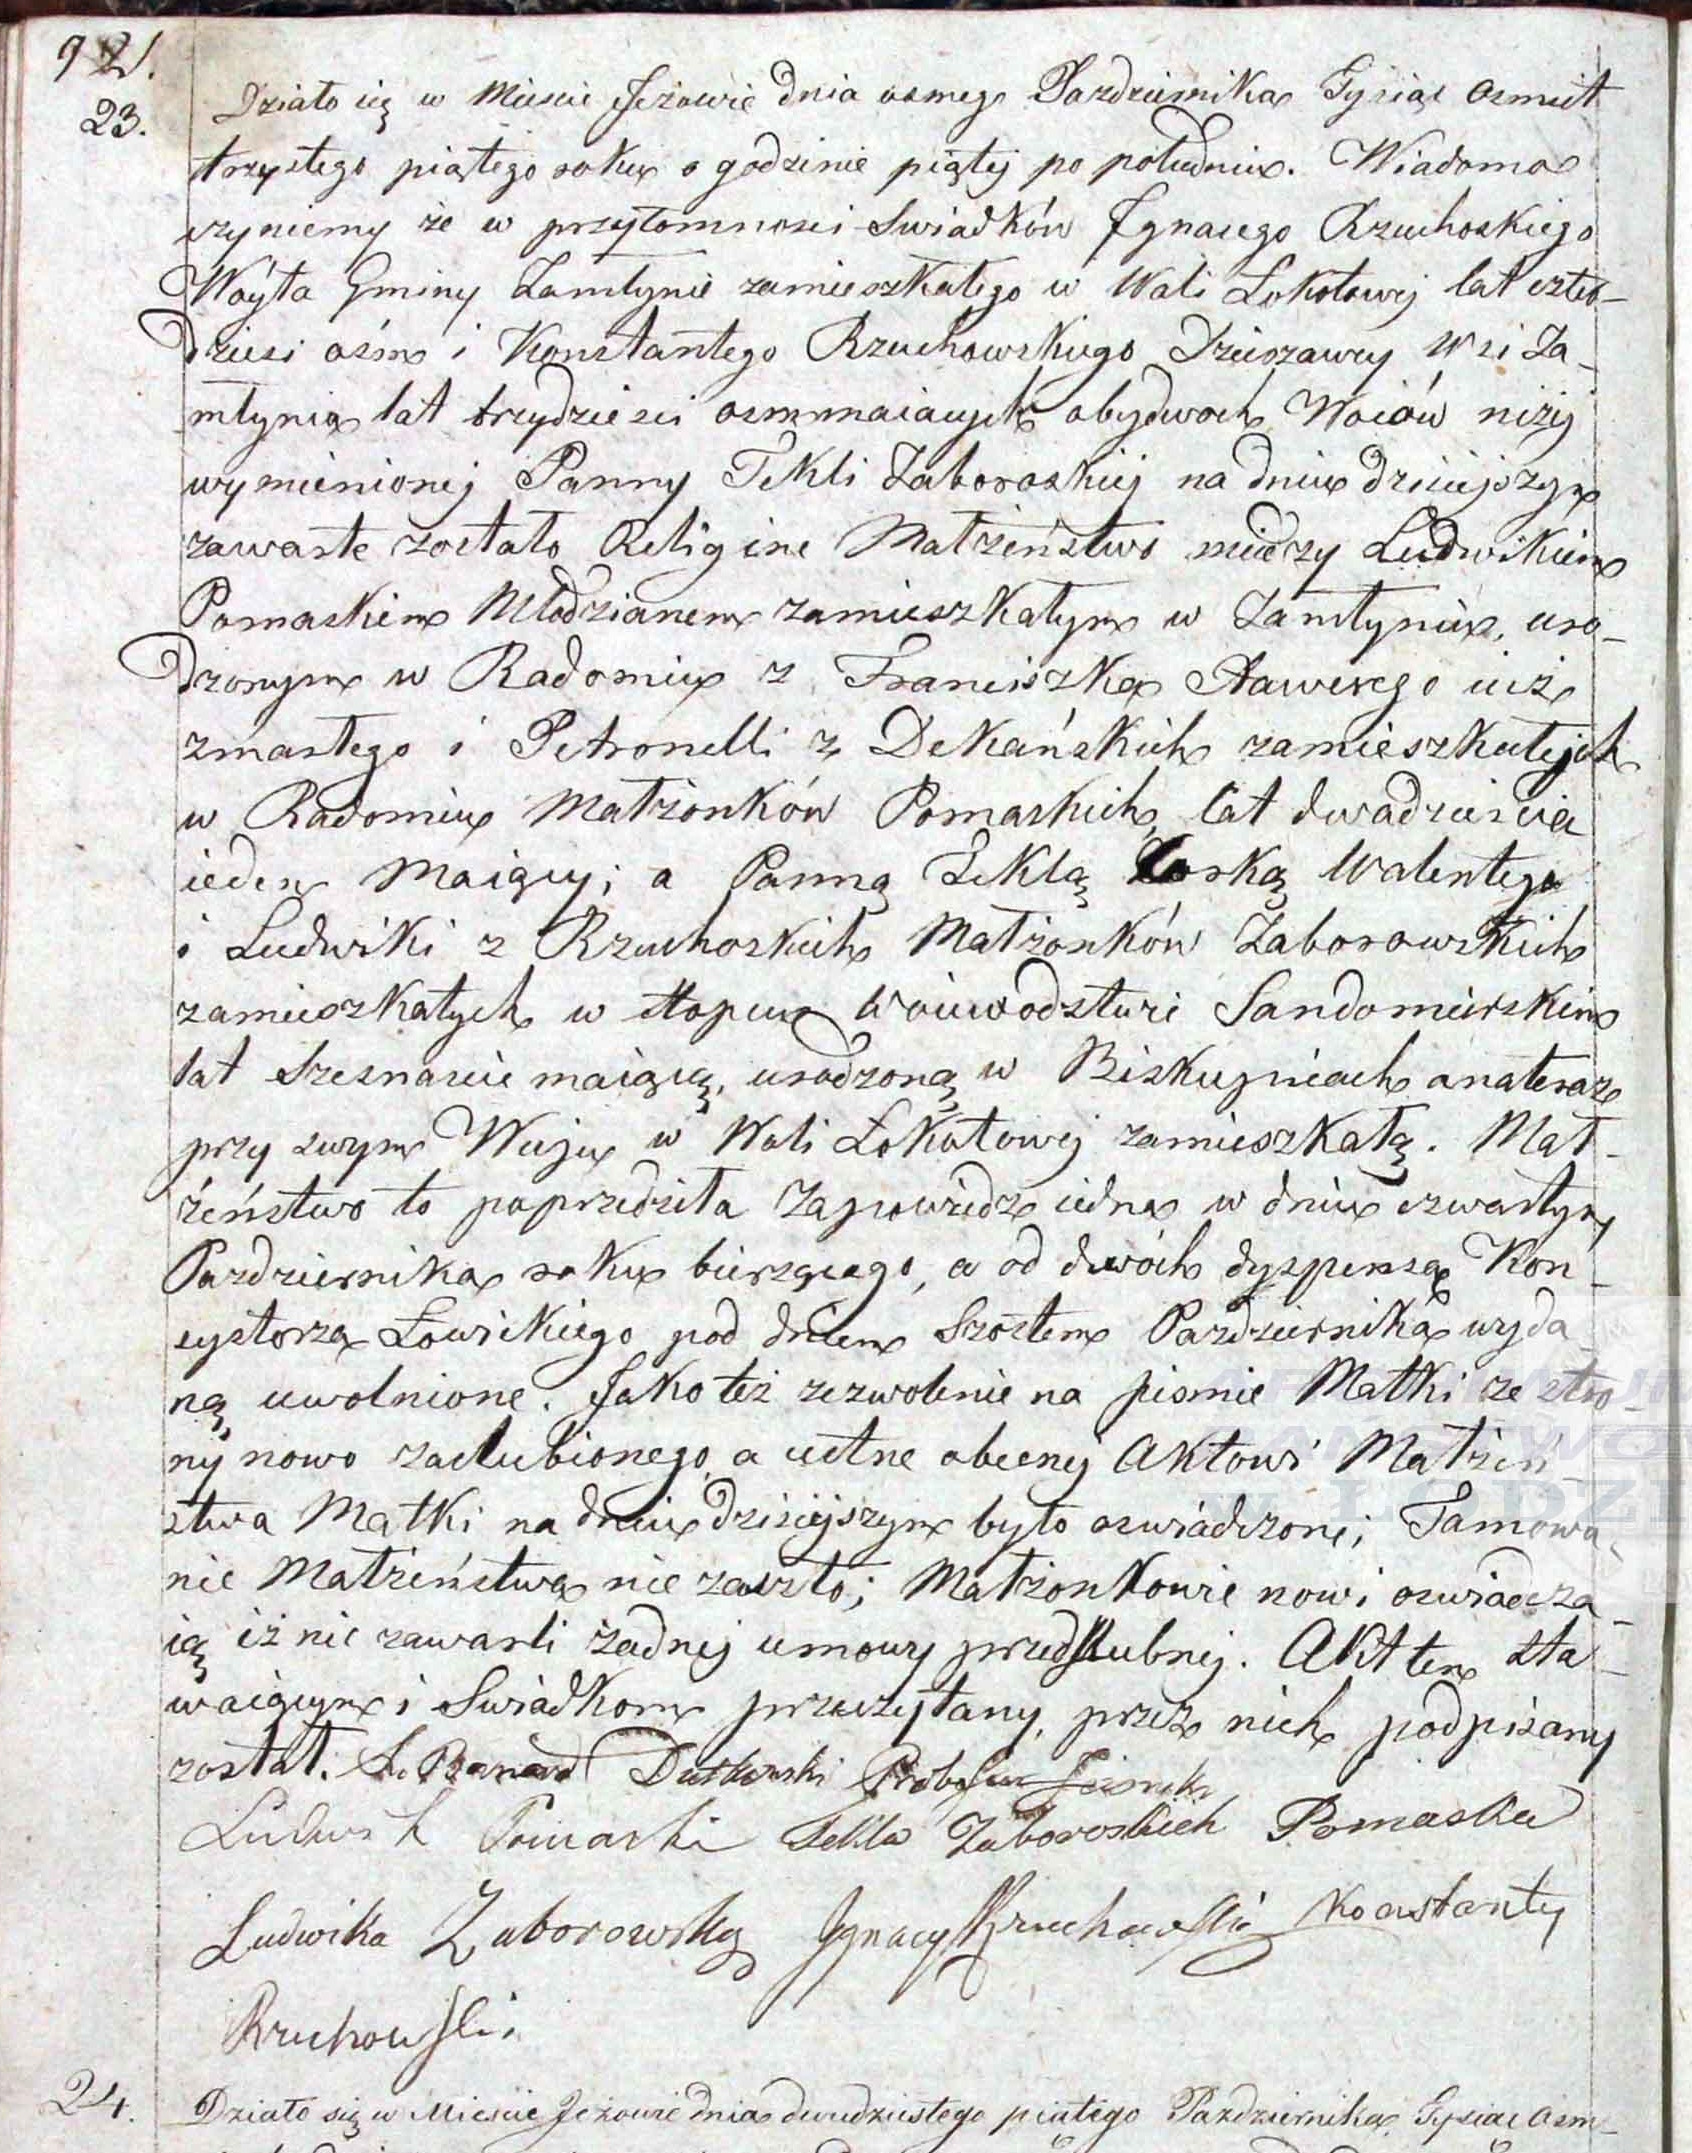 92.
23. Działo się w Miescie Jeżowie dnia osmego Pazdziernika Tysiąc osmset
trzystego piątego roku o godzinie piątej po południu. Wiadomo
czyniemy że w przytomnosci Swiadków Jgnacego Rzuchoskiego
Woyta Gminy Zamłynie zamieszkałego w Woli Łokotowej lat czter-
dziesi ośm i Konstantego Rzuchowskiego Dzierzawcy Wsi Za-
młynia lat trzydziesci osm maiących obydwoch Wuiów niżej
wymienionej Panny Tekli Zaboroskiej na dniu dzisiejszym
zawarte zostało Religine Małżeństwo między Ludwikiem
Pomaskim Młodzianem zamieszkałym w Zamłyniu, uro-
dzonym w Radomiu z Franciszka Xawerego iuż
zmarłego i Petronelli z Dekańskich zamieszkałych
w Radomiu Małżonków Pomaskich, lat dwadziescia
ieden Maiący; a Panną Teklą Corką Walentego
i Ludwiki z Rzuchoskich Małżonków Zaborowskich
zamieszkałych w Wojewodztwie Sandomierskim
lat Szesnascie maiącą, urodzoną w Biskupicach a na teraz
przy swym Wuju w Woli Łokotowej zamieszkałą. Mał-
żeństwo to poprzedziła Zapowiedz iedna w dniu czwartym
Pazdziernika roku bierzącego, a od dwóch dyspensą Kon-
systorza Łowickiego pod dniem Szostem Pazdziernika wyda
ną uwolnione. Jako też zezwolenie na pismie Matki ze stro-
ny nowo zaslubionego, a ustne obecnej Aktowi Małżeń
stwa Matki na dniu dzisiejszym było oswiadczone; Tamowa-
nie Małżeństwa nie zaszło; Małżonkowie nowi oswiadcza-
ią iż nie zawarli żadnej umowy przedslubnej. Akt ten sta-
waiącym i Swiadkom przeczytany, przez nich podpisany
został. X. Bernard Dutkowski Proboszcz Jeżowski
Ludwik Pomaski Tekla Zaboroskich Pomaska
Ludwika Zaborowska Jgnacy Rzuchowski Konstanty
Rzuchowski
24. Działo się w Miescie Jeżowie dnia dwudziestego piątego Pazdziernika Tysiąc osm-